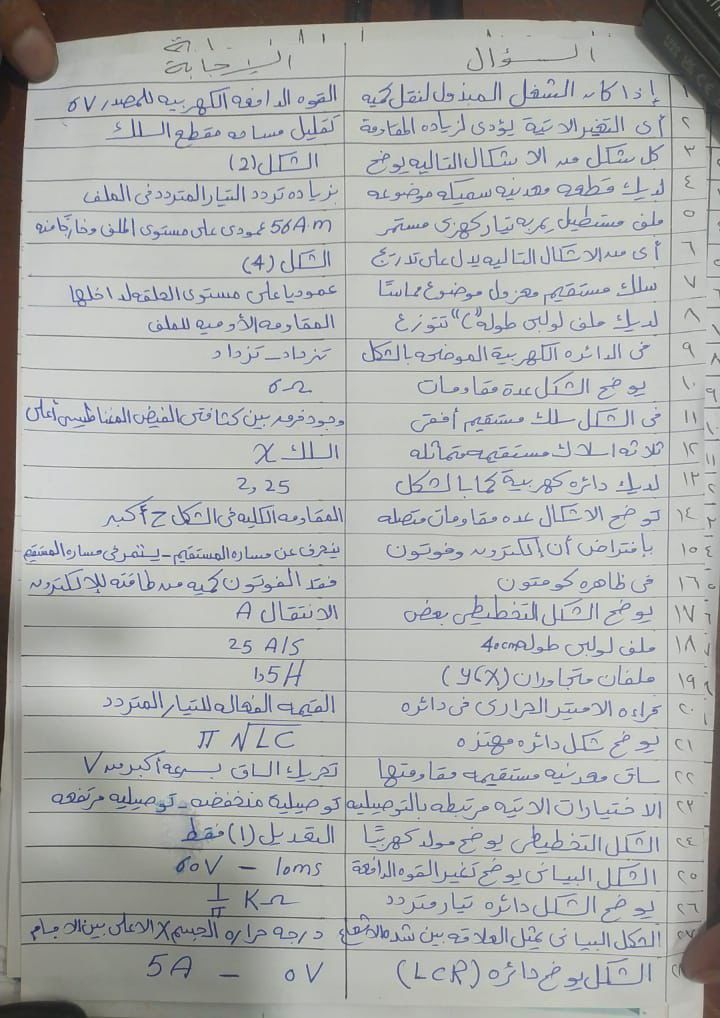 السؤال الإجابة
١ إذا كان الشغل المبذول لنقل كمية القوه الدافعه الكهربيه للمصدر 6V
٢ أى التغيرات الآتية يؤدى لزياده المقاومة تقليل مساحه مقطع السلك
٣ كل شكل من الاشكال التاليه يوضح الشكل (2)
٤ لديك قطعه معدنيه سميكه موضوعه بزياده تردد التيار المتردد فى الملف
٥ ملف مستطيل يمر به تيار كهربى مستمر 56A.m عمودى على مستوى الملف وخارجًا منه
٦ أى من الاشكال التاليه يدل على تدريج الشكل (4)
٧ سلك مستقيم معزول موضوع مماسًا عموديا على مستوى الحلقه لداخلها
٨ لديك ملف لولبى طوله "L" تتوزع المقاومه الأوميه للملف
٩ فى الدائره الكهربية الموضحه بالشكل تزداد - تزداد
١٠ يوضح الشكل عدة مقاومات 6Ω
١١ فى الشكل سلك مستقيم أفقى وجود فرق بين كثافتى الفيض المغناطيسى أعلى
١٢ ثلاثه اسلاك مستقيمه متماثله السلك X
١٣ لديك دائره كهربية كما بالشكل 2,25
١٤ توضح الاشكال عده مقاومات متصله المقاومه الكليه فى الشكل ج أكبر
١٥ بإفتراض أن إلكترون وفوتون ينحرف عن مساره المستقيم - يستمر فى مساره المستقيم
١٦ فى ظاهره كومتون فقد الفوتون كميه من طاقته للإلكترون
١٧ يوضح الشكل التخطيطى بعض الانتقال A
١٨ ملف لولبى طوله 40cm 25 A/S
١٩ ملفان متجاوران (X،Y) 1,5H
٢٠ قراءه الاميتر الحرارى فى دائره القيمه الفعاله للتيار المتردد
٢١ يوضح شكل دائره مهتزه π √LC
٢٢ ساق معدنيه مستقيمه مقاومتها تحريك الساق بسرعه أكبر من V
٢٣ الاختيارات الاتيه مرتبطه بالتوصيليه توصيلية منخفضه - توصيليه مرتفعه
٢٤ الشكل التخطيطى يوضح مولد كهربيًا التعديل (1) فقط
٢٥ الشكل البيانى يوضح تغير القوه الدافعة 60V – 10ms
٢٦ يوضح الشكل دائره تيار متردد 1/π KΩ
٢٧ الشكل البيانى يمثل العلاقه بين شده الاشعاع درجه حراره الجسم X الاعلى بين الاجسام
الشكل يوضح دائره (LCR) 5A – 0V